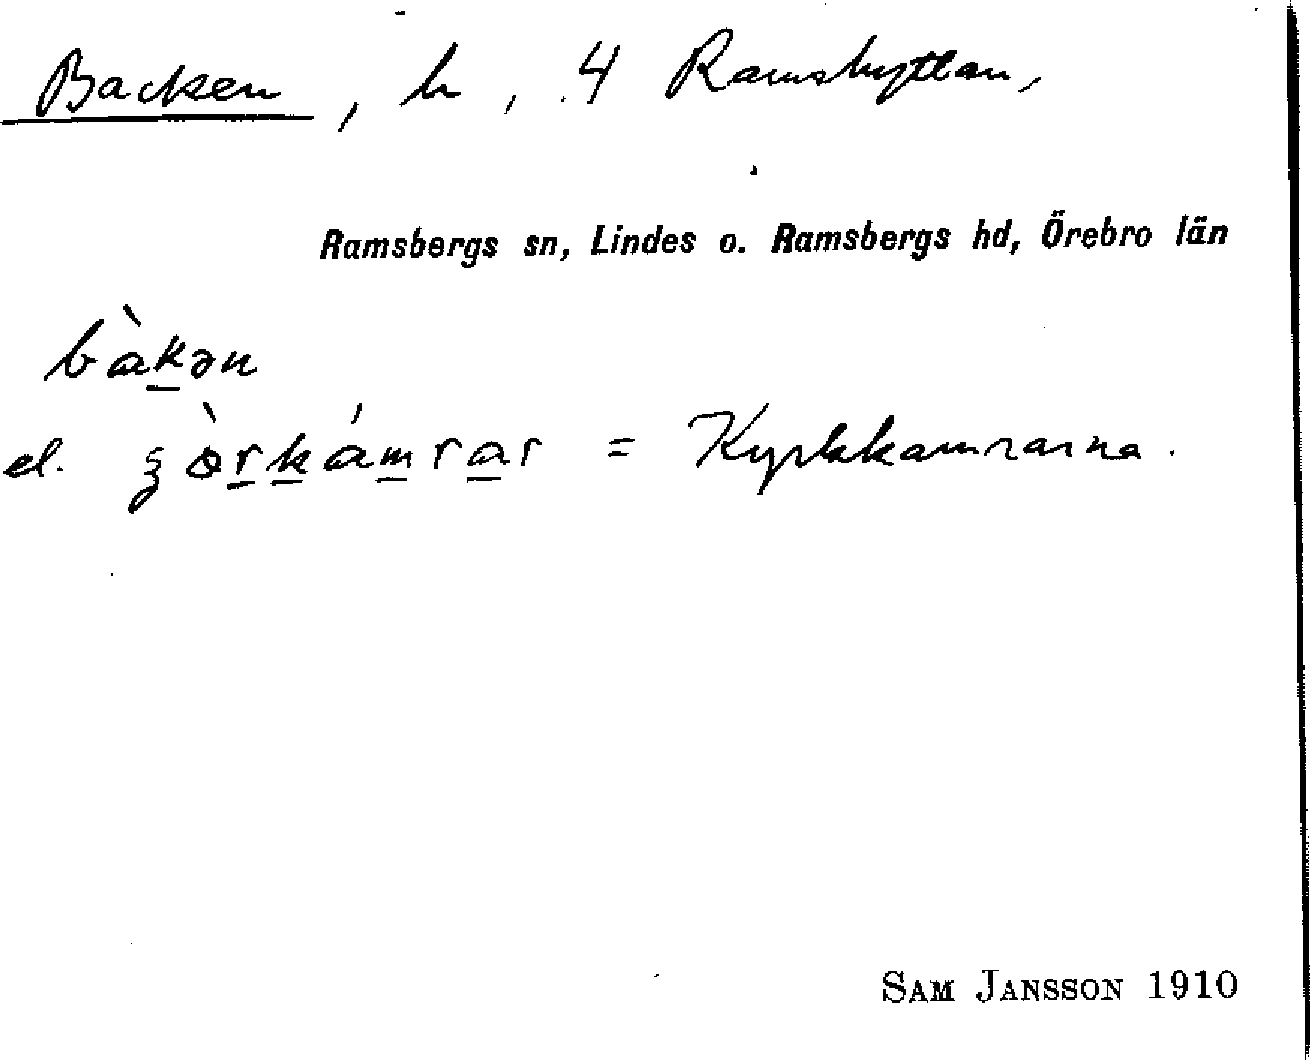 Backen, h, 4 Ramshyttan,
Ramsbergs sn, Lindes o. Ramsbergs hd, Örebro län
bàkən
el. = Kyrkkamrarna.
SAM JANSSON 1910